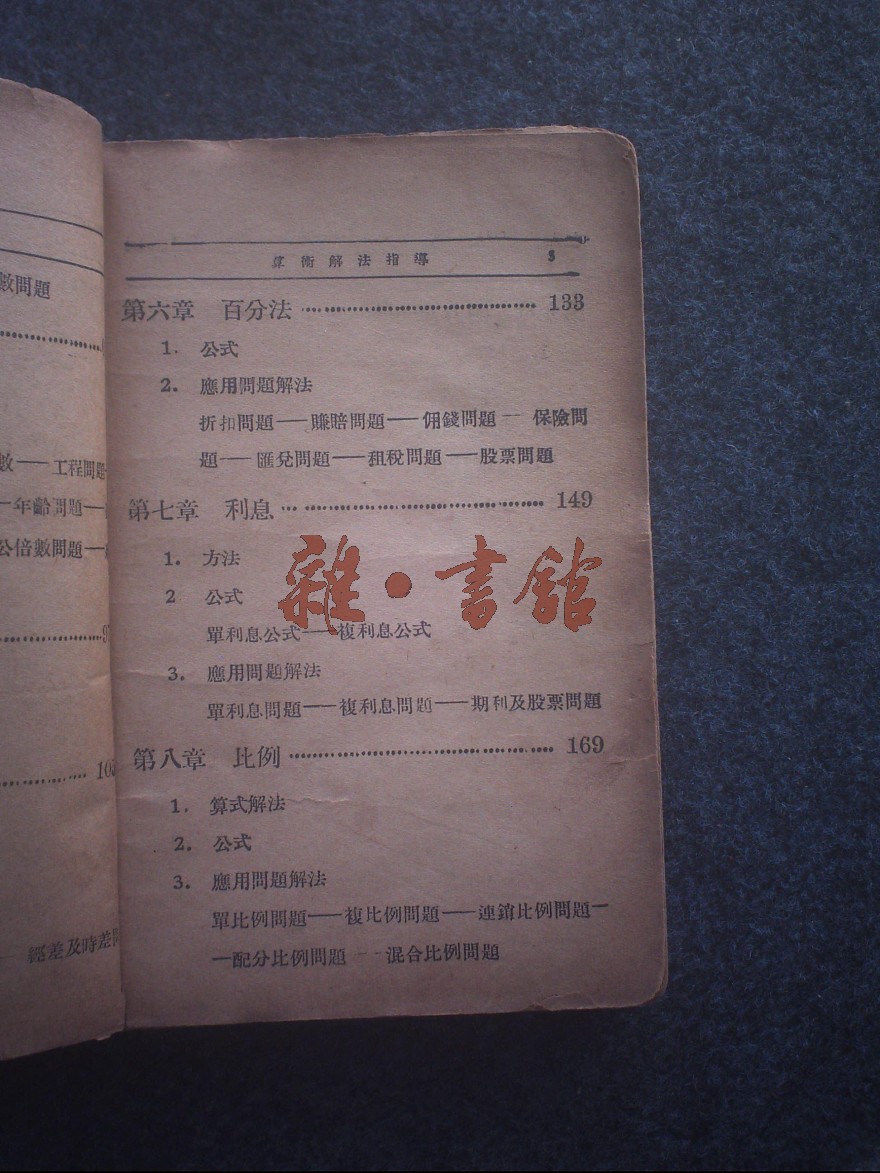 數問題
數——工程問題
—年齡問題—
公倍數問題—
經差及時差
算術解法指導 3
第六章 百分法 ………………………… 133
1. 公式
2. 應用問題解法
折扣問題——賺賠問題——佣錢問題——保險問
題——匯兌問題——租稅問題——股票問題
第七章 利息 ………………………… 149
1. 方法
2 公式
單利息公式——複利息公式
3. 應用問題解法
單利息問題——複利息問題——期利及股票問題
第八章 比例 ………………………… 169
1. 算式解法
2. 公式
3. 應用問題解法
單比例問題——複比例問題——連鎖比例問題—
—配分比例問題——混合比例問題
雜·書館